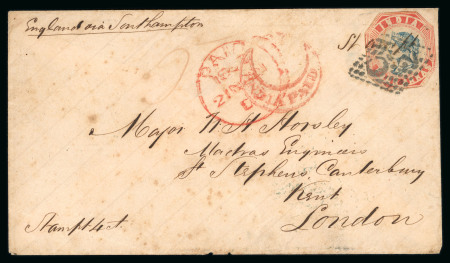 England via Southampton
INDIA
PAID
INDIA PAID
Major W H Horsley
Madras Engineers
St Stephens, Canterbury
Kent
London
Stampt 4 A